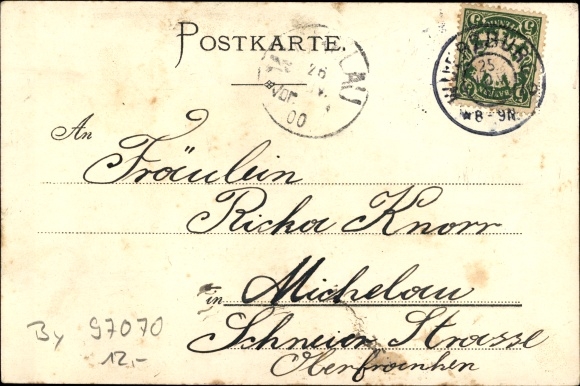 POSTKARTE.
26
Vor.
00
LAU
25
8-9N.
5
5
An
Fräulein
Richa Knorr
in Michelau
Schneier Strasse
Oberfranken
By 97070
12,-